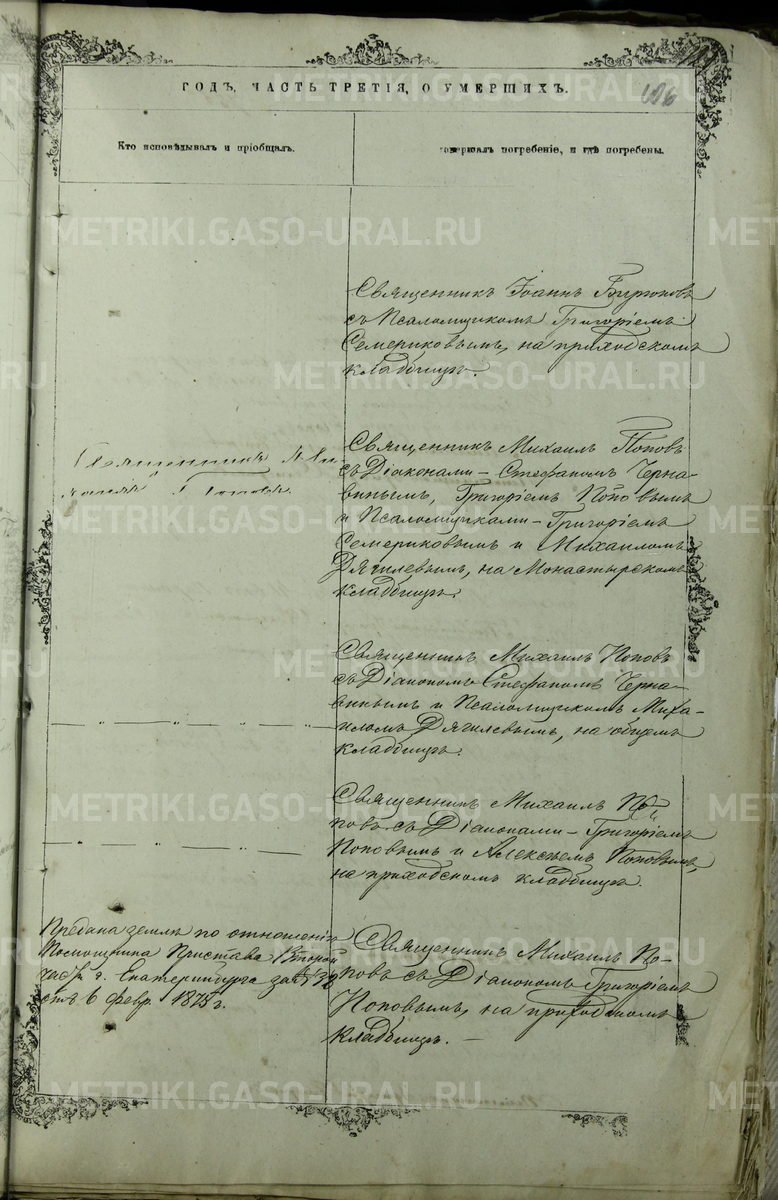 ГОДЪ, ЧАСТЬ ТРЕТІЯ, О УМЕРШИХЪ.
106
Кто исповѣдывалъ и пріобщалъ.
совершалъ погребеніе, и гдѣ погребены.
Священникъ Іоаннъ
съ Псаломщикомъ Григоріемъ
Семериковымъ, на приходскомъ
кладбищѣ.
Священникъ Ми-
хаилъ Поповъ.
Священникъ Михаилъ Поповъ
съ Діаконами - Стефаномъ Черна-
винымъ, Григоріемъ Поповымъ
и Псаломщиками - Григоріемъ
Семериковымъ и Михаиломъ
Дягилевымъ, на Монастырскомъ
кладбищѣ.
— „ — „ — „ —
Священникъ Михаилъ Поповъ
съ Діакономъ Стефаномъ Черна-
винымъ и Псаломщикомъ Миха-
иломъ Дягилевымъ, на общемъ
кладбищѣ.
— „ — „ — „ —
Священникъ Михаилъ По-
повъ съ Діаконами - Григоріемъ
Поповымъ и Алексѣемъ Поповымъ,
на приходскомъ кладбищѣ.
Предана землѣ по отношенію
Помощника Пристава Второй
части г. Екатеринбурга за №
отъ 6 февр. 1875 г.
Священникъ Михаилъ По-
повъ съ Діакономъ Григоріемъ
Поповымъ, на приходскомъ
кладбищѣ. —
METRIKI.GASO-URAL.RU